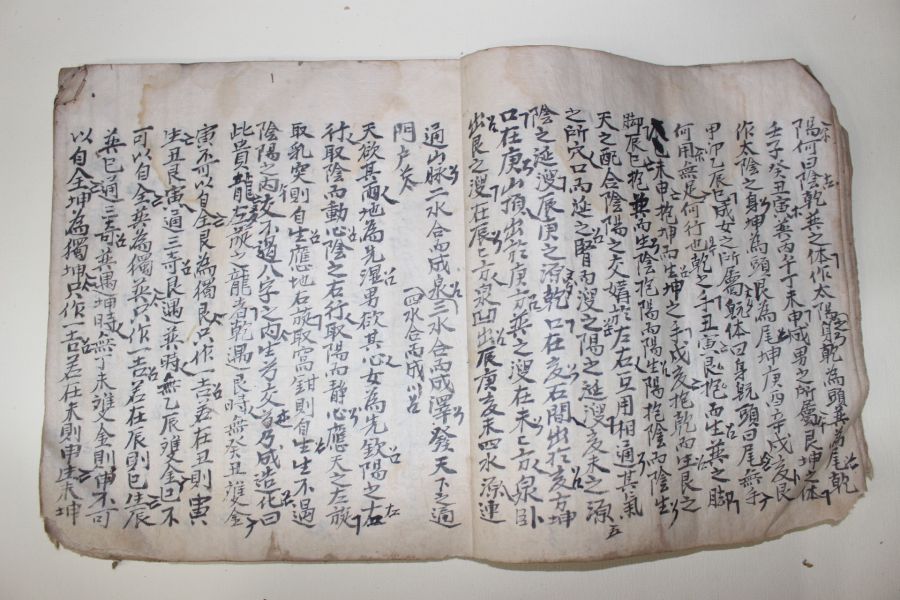 陽何曰陰乾巽之体作太陽身乾為頭巽為尾乾
壬子癸丑寅巽丙午丁未申成男之所屬艮坤之体
作太陰之身坤為頭艮為尾坤庚酉辛戌亥艮
甲卯乙辰巳成女之所屬乾体曰身乾頭曰尾無手
何用無足何行也乾之手丑寅艮抱而生巽之脚
巳未申抱坤而生坤之手戌亥抱乾而生艮之
脚辰巳抱巽而生陰抱陽而陽生陽抱陰而陰生
天之配合陰陽之交媾左左右右用相通其氣
之所穴口而延之腎而溲之陽之延溲亥未之源
陰之延溲辰庚之源乾口在亥石間出於亥方坤
口在庚山頂出於庚方巽之溲在未亡方泉卧
出艮之溲在辰亡方泉凹出辰庚亥未四水源連
通山脉二水合而成泉三水合而成澤發天下之通
門戶 四水合而成川
天欲其雨地為先湿男欲其心女為先欽陽之右
行取陰而動心陰之右行取陽而静心應天之左旋
取乳突則自生應地右旋取窩鉗則自生生不過
陰陽之丙交不過八字之内生芳交首乃成造花曰
此貴龍右旋之龍者乾遇艮時無癸丑雖金
寅不可以自全艮為獨艮只作一吉若在丑則寅
生丑艮寅通三奇艮遇巽時無乙辰雖全巳不
可以自全巽為獨巽只作一吉若在辰則巳生辰
巽巳通三奇巽遇坤時無丁未雖全則申不可
以自全坤為獨坤只作一吉若在未則申生未坤